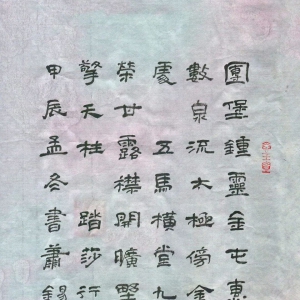 團堡鍾靈金屯東
數泉流太極傍金
處 五馬橫堂九
榮甘露襟開曠野
擎天柱 踏莎行
甲辰孟冬書蕭錫